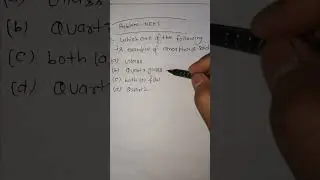 Problem- NEET
Which one of the following
is example of amorphous solid
(a) Glass
(b) Quartz glass
(c) both (a) & (b)
(d) Quartz
(b) Quart
(c) both (a
(d) Qua